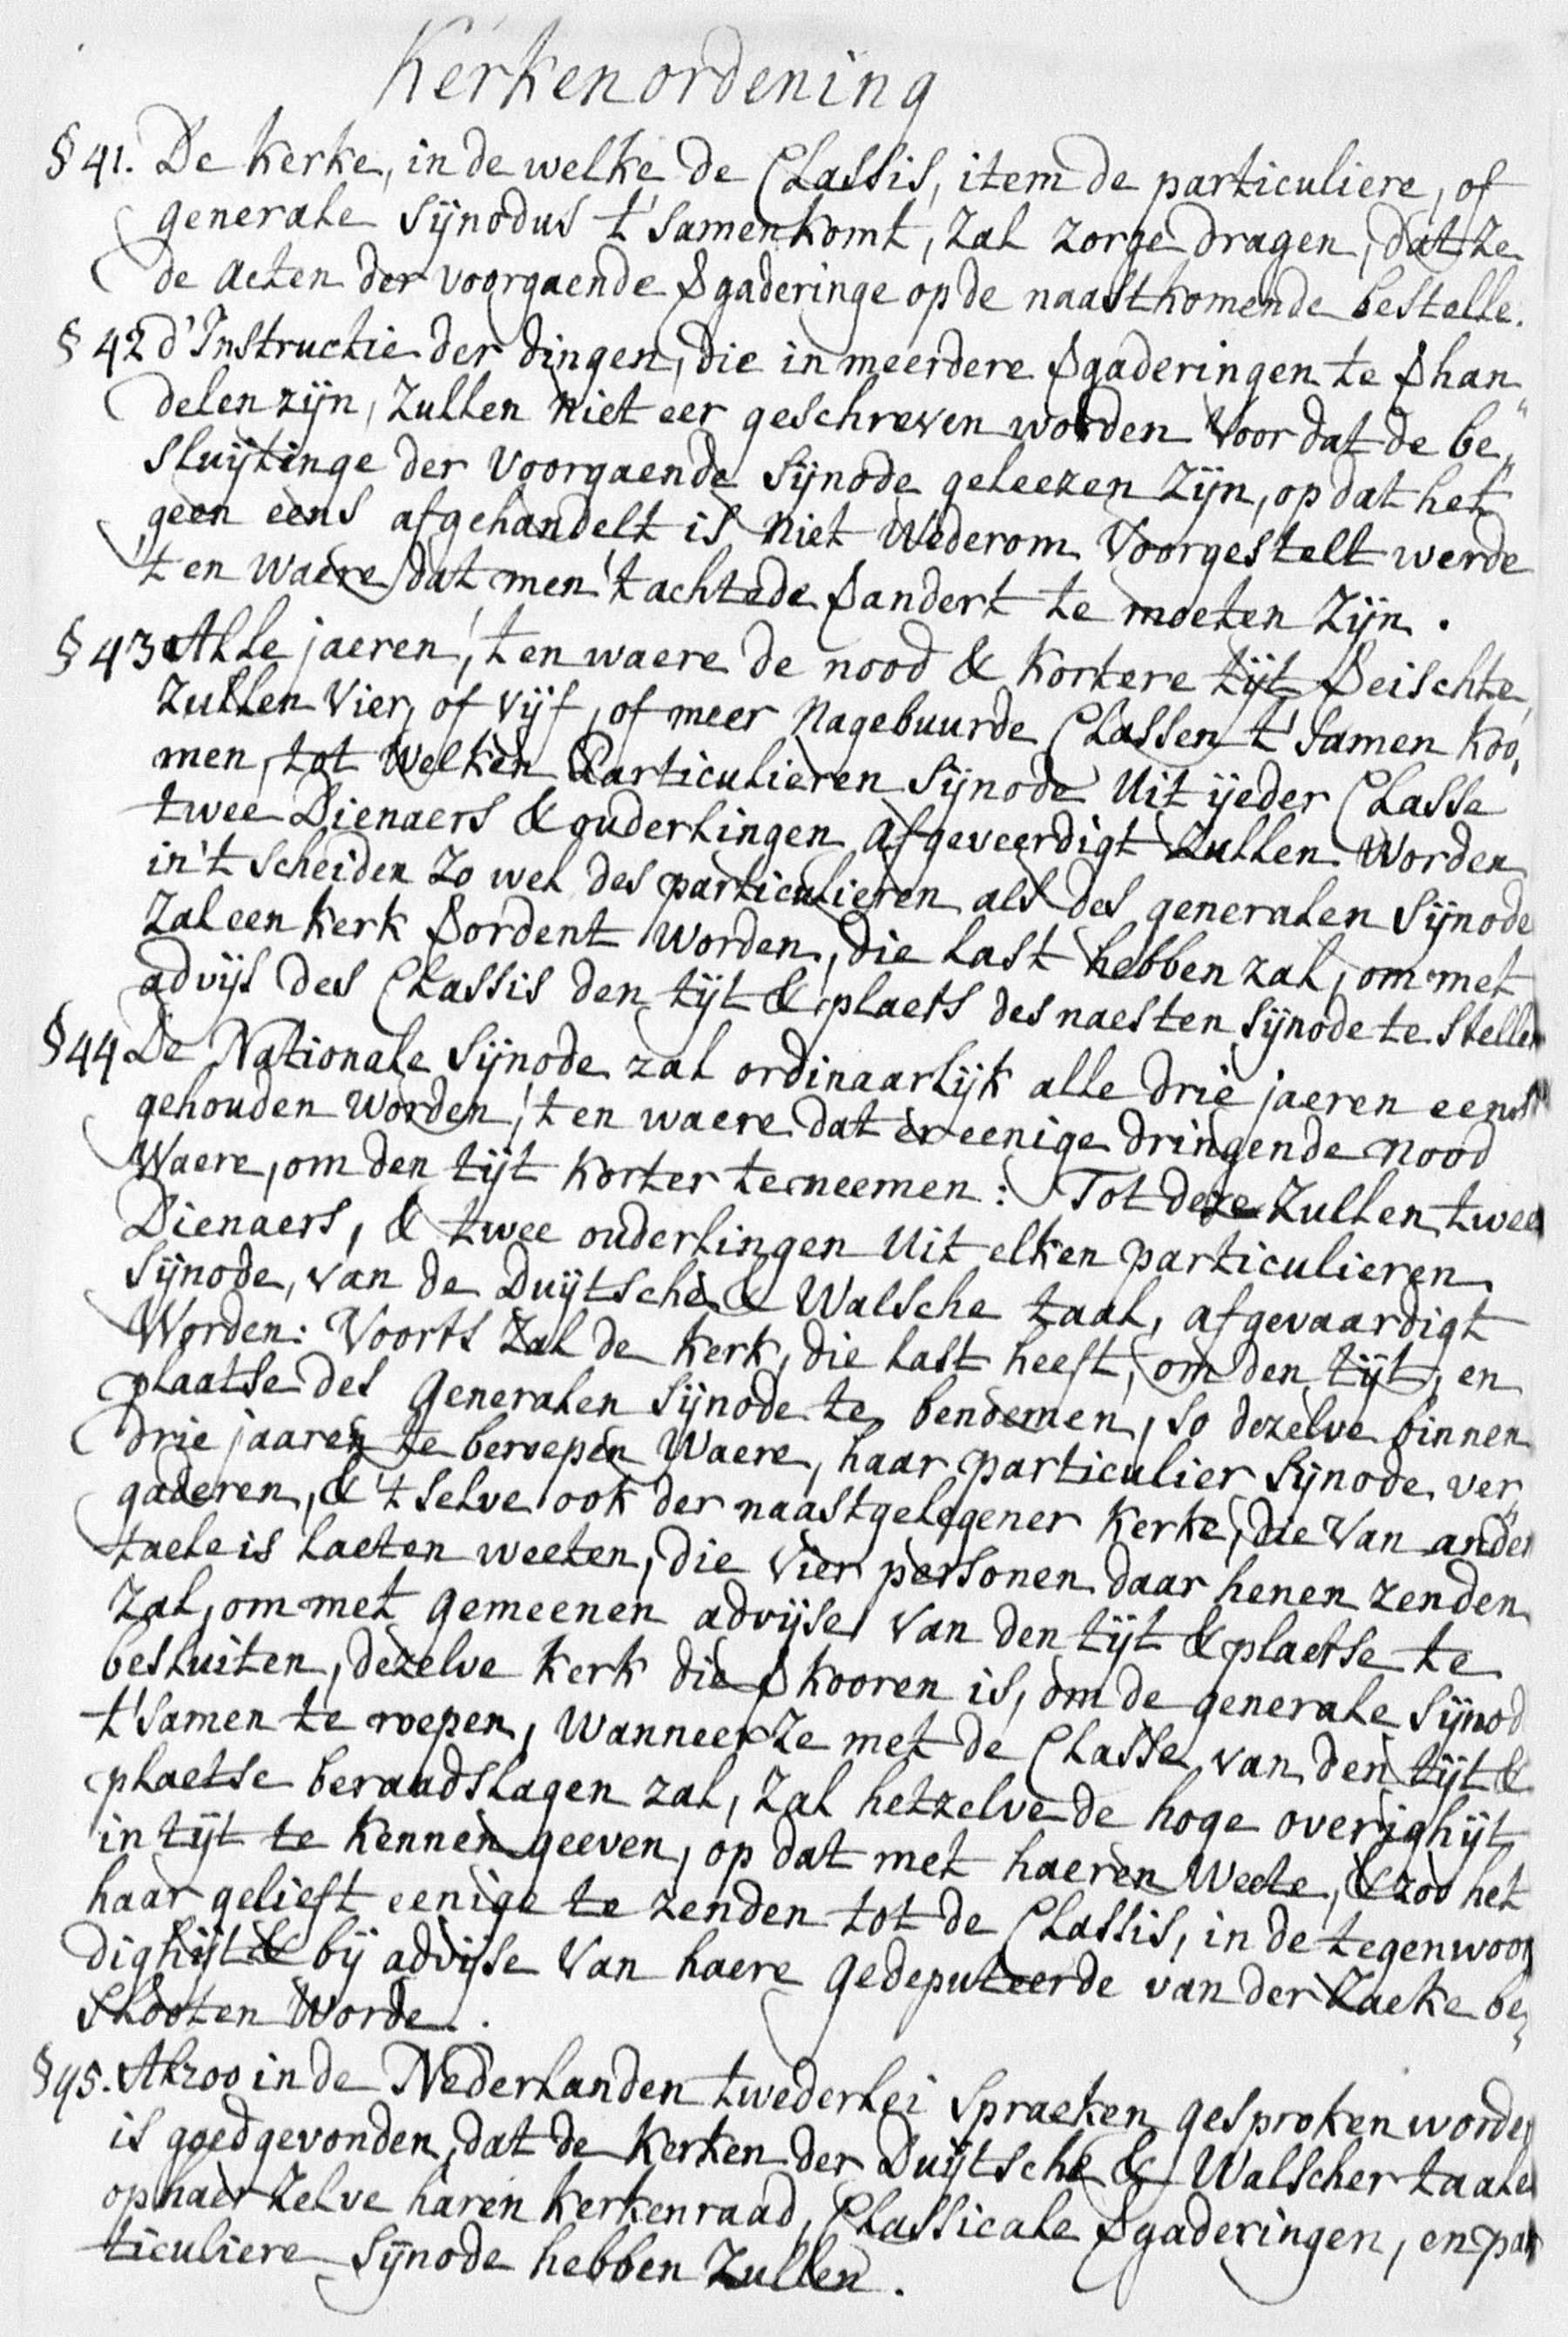 Kerkenordening
§ 41. De kerke, in de welke de Classis, item de particuliere, of
generale Sÿnodus t'samenkomt, zal zorge dragen, dat ze
de acten der voorgaende vgaderinge op de naastkomende bestelle.
§ 42 d'Instructie der dingen, die in meerdere vgaderingen te vhan„
delen zijn, zullen niet eer geschreven worden voor dat de be„
sluÿtinge der voorgaende Sÿnode geleezen zijn, op dat het
geen eens afgehandelt is niet wederom voorgestelt werde
't en waere dat men 't achtede vandert te moeten zijn.
§ 43 Alle jaeren, 't en waere de nood & kortere tijt veischte,
zullen vier, of vijf, of meer nagebuurde Classen t'samen koo„
men, tot welken Particulieren Sÿnode uit ÿeder Classe
twee Dienaers & ouderlingen afgeveerdigt zullen worden
in 't scheiden zo wel des particulieren als des generalen Sÿnode
zal een kerk vordent worden, die last hebben zal, om met
advijs des Classis den tijt & plaets des naesten Sÿnode te stellen
§ 44 De Nationale Sÿnode zal ordinaarlijk alle drie jaeren eens
gehouden worden, 't en waere dat er eenige dringende nood
waere, om den tijt korter te neemen: Tot deze zullen twee
Dienaers, & twee ouderlingen uit elken particulieren
Sÿnode, van de Duÿtsche & Walsche taal, afgevaardigt
worden: Voorts zal de kerk, die last heeft, om den tijt, en
plaatse des generalen Sÿnode te benoemen, so dezelve binnen
drie jaaren te beroepen waere, haar particulier Sÿnode ver„
gaderen, & 't selve ook der naastgelegener kerke, die van ander
taele is laeten weeten, die vier personen daar henen zenden
zal, om met gemeenen advijse van den tijt & plaetse te
besluiten, dezelve kerk die vkooren is, om de generale Sÿnod
t'samen te roepen, wanneer ze met de Classe van den tijt &
plaetse beraadslagen zal, zal hetzelve de hoge overighijt
in tijt te kennen geeven, op dat met haeren weete, & zoo het
haar gelieft eenige te zenden tot de Classis, in de tegenwoor
dighijt & bij advijse van haere gedeputeerde van der zaeke be„
slooten worde.
§ 45. Alzoo in de Nederlanden twederlei spraeken gesproken worden
is goedgevonden, dat de kerken der Duÿtsche & Walscher taalen
op haer zelve haren kerkenraad, Classicale vgaderingen, en par
ticuliere Sÿnode hebben zullen.